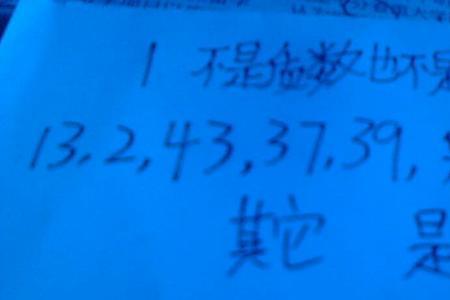 1 不是盒数也不是
13,2,43,37,39,
其它 是